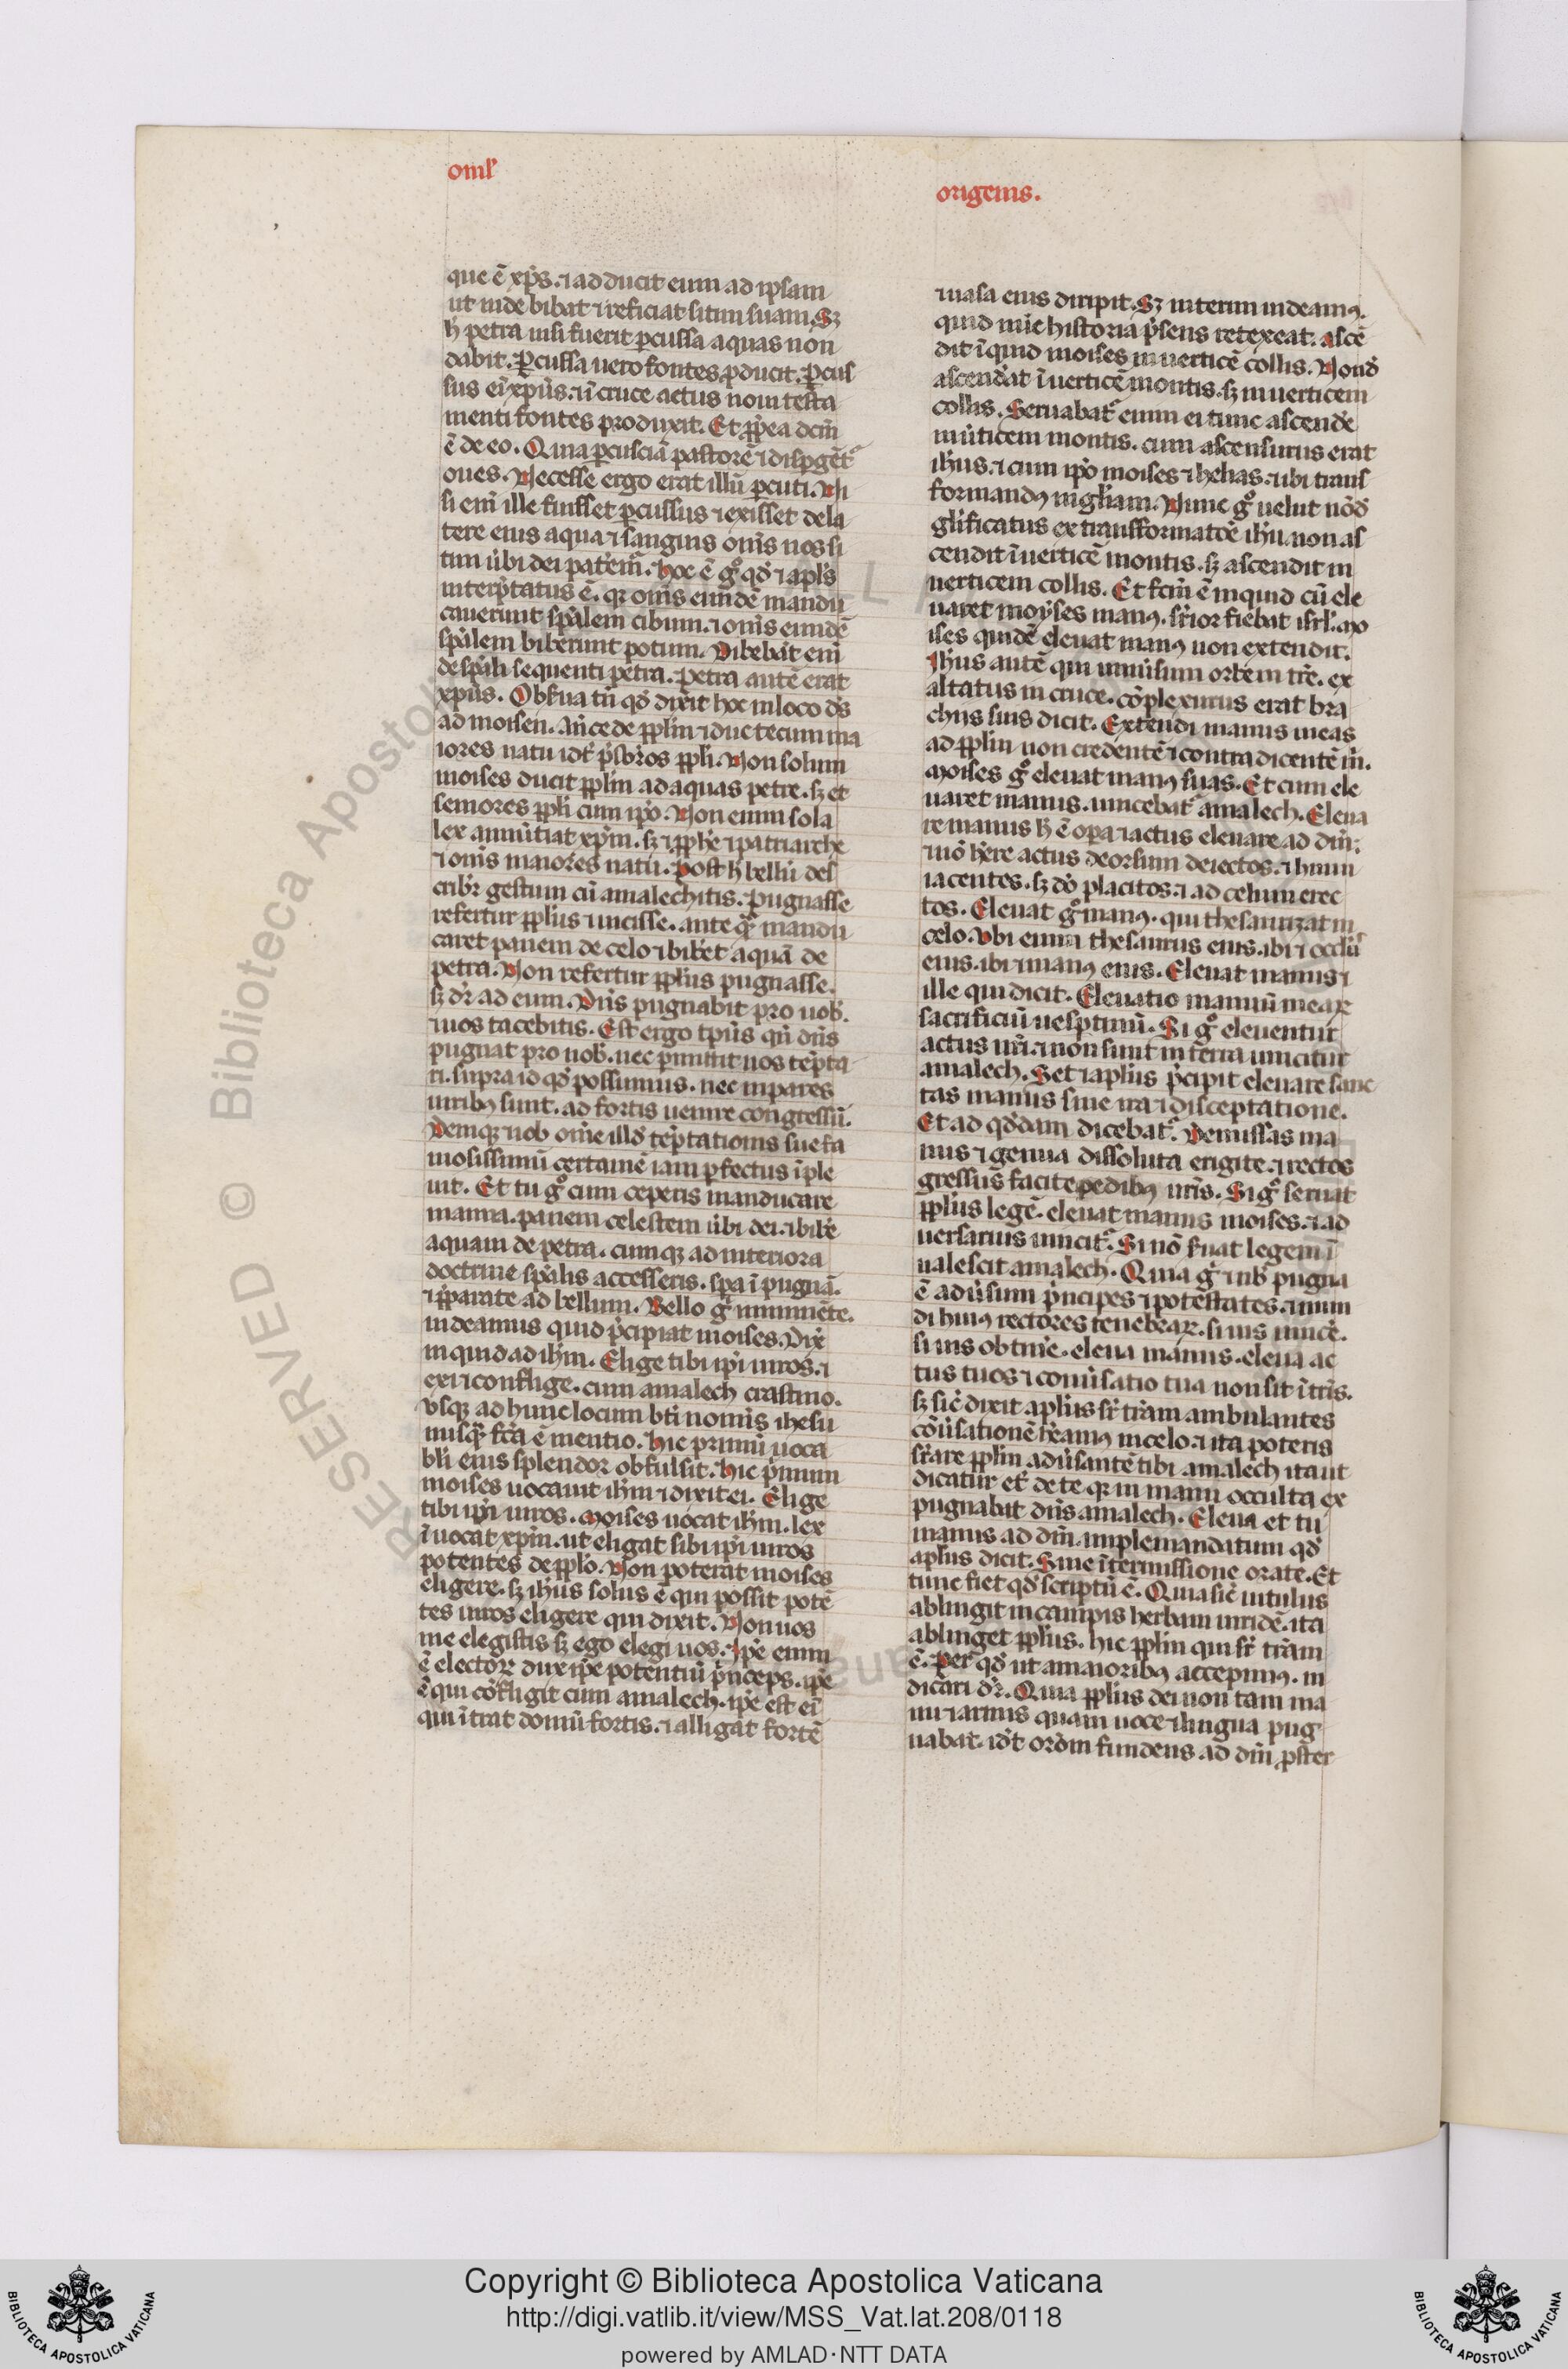 oml'
que ē xp̄s. ⁊ adducit eum ad ipsam
ut inde bibat ⁊ reficiat sitim suam. Sꝫ
h̄ petra nisi fuerit ꝑcussa aquas non
dabit. Ꝑcussa uero fontes ꝓducit. Ꝑcus
sus ei xp̄us. ⁊ ī cruce actus noui testa
menti fontes produxit. Et ꝓpea dcm̄
ē de eo. Quia ꝑcuciā pastorē ⁊ dispgēt᷑
oues. Necesse ergo erat illū ꝑcuti. Ni
si eni ille fuisset ꝑcussus ⁊ exisset de la
tere eius aqua ⁊ sanguis om̄s nos si
tim ūbi dei patem̄. Hoc ē gº qd̓ ⁊ apl's
interp̄tatus ē. qꝛ om̄s eundē mandu
cauerunt sp̄alem cibum. ⁊ om̄s eundē
sp̄alem biberunt potum. Bibebāt eni
de sp̄ali sequenti petra. petra autē erat
xp̄us. Obs̄ua tn̄ qd̓ dixit hoc in loco dn̄s
ad moisen. An̄cede ppl̄m ⁊ duc tecum ma
iores natu idē p̄sbr̄os ppl̄i. Non solum
moises ducit ppl̄m ad aquas petre. sꝫ et
seniores ppl̄i cum ip̄o. Non enim sola
lex annūtiat xp̄m. sꝫ ⁊ ꝓph̄e ⁊ patriarche
⁊ om̄s maiores natu. Post h̄ bellū des
cribr̄ gestum cū amalechitis. Pugnasse
refertur ppl̄us ⁊ uicisse. ante qꝫ mandu
caret panem de celo ⁊ bibēt aquā de
petra. Non refertur ppl̄us pugnasse.
sꝫ dr̄ ad eum. Dn̄s pugnabit pro uob̄.
⁊ uos tacebitis. Est ergo tp̄us qn̄ dn̄s
pugnat pro uob̄. nec ꝑmittit uos tēpta
ri. supra id qd̓ possumus. nec inpares
uiribꝰ sunt. ad fortis uenire congressū.
Deniqꝫ iob om̄e illd̓ tēptationis sue fa
mosissimū certamē iam ꝑfectus īple
uit. Et tu gº cum ceperis manducare
manna. panem celestem ūbi dei. ⁊ bibē
aquam de petra. cumqꝫ ad interiora
doctrine sp̄alis accesseris. sp̄a ī pugnā.
⁊ p̄parate ad bellum. Bello gº imminēte.
uideamus quid p̄cipiat moises. Dix̄
inquid ad ih̄m. Elige tibi ip̄i uiros. ⁊
exi ⁊ conflige. cum amalech crastino.
Vsqꝫ ad hunc locum bt̄i nominis ihesu
nusqꝫ fc̄a ē mentio. Hic primū uoca
bl̄i eius splendor obfulsit. Hic p̄mum
moises uocauit ih̄m ⁊ dixit ei. Elige
tibi ip̄i uiros. Moises uocat ih̄m. lex
īuocat xp̄m. ut eligat sibi ip̄i uiros
potentes de ppl̄o. Non poterat moises
eligere. sꝫ ih̄us solus ē qui possit potē
tes uiros eligere qui dixit. Non uos
me elegistis sꝫ ego elegi uos. Ip̄e enim
ē electoꝝ dux ip̄e potentiū p̄nceps. ip̄e
ē qui cōfligit cum amalech. ip̄e est ei
qui ītrat domū fortis. ⁊ alligat fortē
origenis.
⁊ uasa eius diripit. Sꝫ interim uideamꝰ.
quid nūc historia p̄sens retexeat. ascē
dit īquid moises in uerticē collis. Nond̓
ascend̓at ī uerticē montis. sꝫ in uerticem
collis. Seruabat᷑ enim ei tunc ascendē
in ūticem montis. cum ascensurus erat
ih̄us. ⁊ cum ip̄o moises ⁊ helias. ⁊ ibi trans
formandꝰ in gl̄iam. Nunc gº uelut nōd̓
gl̄ificatus ex transformatōe ih̄u. non as
cendit ī uerticē montis. sꝫ ascendit in
uerticem collis. Et fc̄m ē inquid cū ele
uaret moyses manꝰ. s̄rior fiebat isrl̄. mo
ises quidē eleuat manꝰ non extendit.
Ih̄us autē qui uniūsum orbem tr̄e. ex
altatus in cruce. cōplexurus erat bra
chijs suis dicit. Extendi manus meas
ad ppl̄m non credentē ⁊ contradicentē m̄.
Moises gº eleuat manꝰ suas. Et cum ele
uaret manus. uincebat᷑ amalech. Eleua
re manus h̄ ē opera ⁊ actus eleuare ad dm̄.
⁊ nō h̄ere actus deorsum deiectos. ⁊ humi
iacentes. sꝫ dō placitos. ⁊ ad celum erec
tos. Eleuat gº manꝰ. qui thesaurizat in
celo. Vbi enim thesaurus eius. ibi ⁊ ocl'us
eius. ibi ⁊ manꝰ eius. Eleuat manus ⁊
ille qui dicit. Eleuatio manuū meaꝝ
sacrificiū uesꝑtinū. Si gº eleuentur
actus nr̄i. ⁊ non sunt in terra uincitur
amalech. Set ⁊ apl̄us p̄cipit eleuare sanc
tas manus sine ira ⁊ disceptatione.
Et ad qd̓dam dicebat᷑. Demissas ma
nus ⁊ genua dissoluta erigite. ⁊ rectos
gressus facite pedibꝰ ur̄is. Si gº seruat
ppl̄us legē. eleuat manus moises. ⁊ ad
uersarius uincit᷑. Si nō s̄uat legem ī
ualescit amalech. Quia gº ⁊ nb̄ pugna
ē adūsum p̄ncipes ⁊ potestates. ⁊ mun
di huiꝰ rectores tenebraꝝ. si uis uincē.
si uis obtinē. eleua manus. eleua ac
tus tuos ⁊ conūsatio tua non sit ī tr̄is.
sꝫ sic̄ dixit apl̄us sr̄ tr̄am ambulantes
cōūsationē h̄eamꝰ in celo. ⁊ ita poteris
sr̄are ppl̄m adūsantē tibi amalech ita ut
dicatur et̄ de te qꝛ in manu occulta ex
pugnabit dn̄s amalech. Eleua et tu
manus ad dm̄. imple mandatum qd̓
apl̄us dicit. Sine ītermissione orate. Et
tunc fiet qd̓ scriptū ē. Quia sic̄ uitulus
ablingit in campis herbam uiridē. ita
ablinget ppl̄us. hic ppl̄m qui sr̄ tr̄am
ē. Per qd̓ ut a maioribꝰ accepimꝰ. in
dicari dr̄. Quia ppl̄us dei non tam ma
nu ⁊ armis quam uoce ⁊ lingua pug
nabat. idē orōm fundens ad dm̄ ꝓster
RESERVED © Biblioteca Apostolica Vaticana
Copyright © Biblioteca Apostolica Vaticana
http://digi.vatlib.it/view/MSS_Vat.lat.208/0118
powered by AMLAD·NTT DATA
BIBLIOTECA APOSTOLICA VATICANA
BIBLIOTECA APOSTOLICA VATICANA